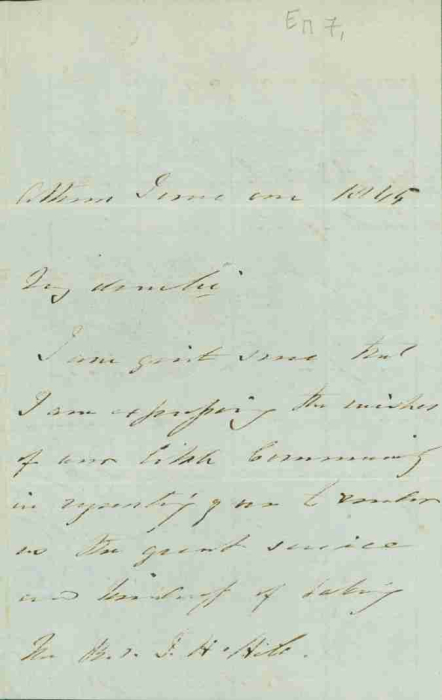 En 7,
Athens June one 1845
My dear Sir
I am quite sure that
I am expressing the wishes
of our little Community
in requesting you to render
us the great service
and kindness of taking
The Rev. J. H. Hill.